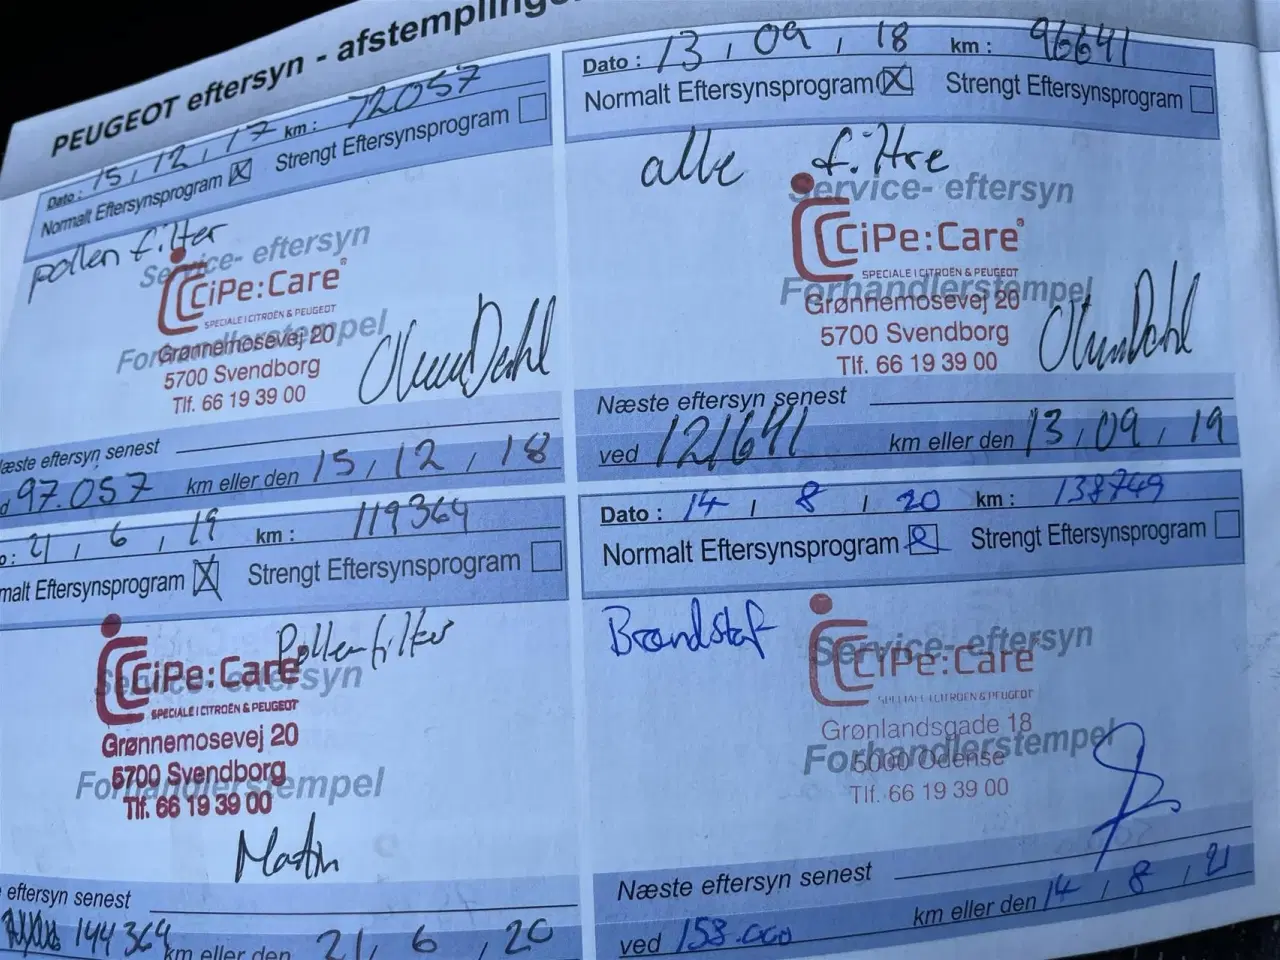 PEUGEOT eftersyn - afstemplinge
Dato : 15 , 12 , 17 km : 72057
Normalt Eftersynsprogram Strengt Eftersynsprogram
pollen filter
Service- eftersyn
CiPe:Care®
SPECIALE I CITROËN & PEUGEOT
Forhandlerstempel
Grønnemosevej 20
5700 Svendborg
Tlf. 66 19 39 00
æste eftersyn senest
d 97.057 km eller den 15 , 12 , 18
Dato : 13 , 09 , 18 km : 96641
Normalt Eftersynsprogram Strengt Eftersynsprogram
alle filtre
Service- eftersyn
CiPe:Care®
SPECIALE I CITROËN & PEUGEOT
Forhandlerstempel
Grønnemosevej 20
5700 Svendborg
Tlf. 66 19 39 00
Næste eftersyn senest
ved 121641 km eller den 13 , 09 , 19
o : 21 , 6 , 19 km : 119364
malt Eftersynsprogram Strengt Eftersynsprogram
Pollenfilter
CiPe:Care
Service- eftersyn
SPECIALE I CITROËN & PEUGEOT
Grønnemosevej 20
5700 Svendborg
Forhandlerstempel
Tlf. 66 19 39 00
Martin
eftersyn senest
144364 km eller den 21 , 6 , 20
Dato : 14 , 8 , 20 km : 138749
Normalt Eftersynsprogram Strengt Eftersynsprogram
Brændstof
Service- eftersyn
CiPe:Care
SPECIALE I CITROËN & PEUGEOT
Grønlandsgade 18
Forhandlerstempel
5000 Odense
Tlf. 66 19 39 00
Næste eftersyn senest
ved 158.000 km eller den 14 , 8 , 21